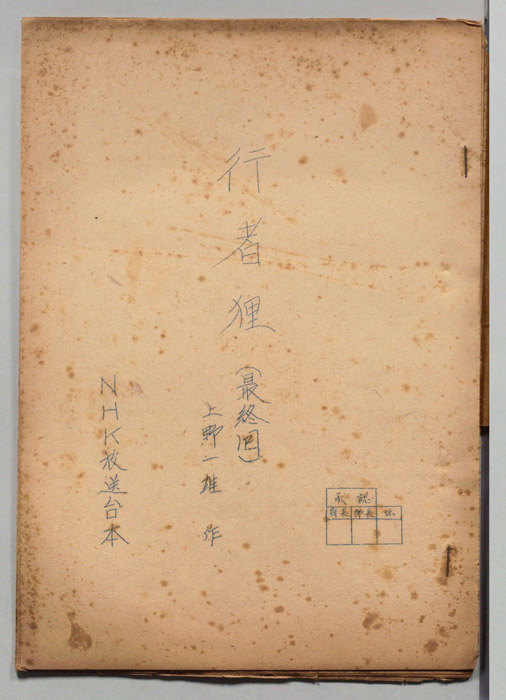 行者狸（最終回）
上野一雄 作
NHK放送台本
承認
部長 課長 係